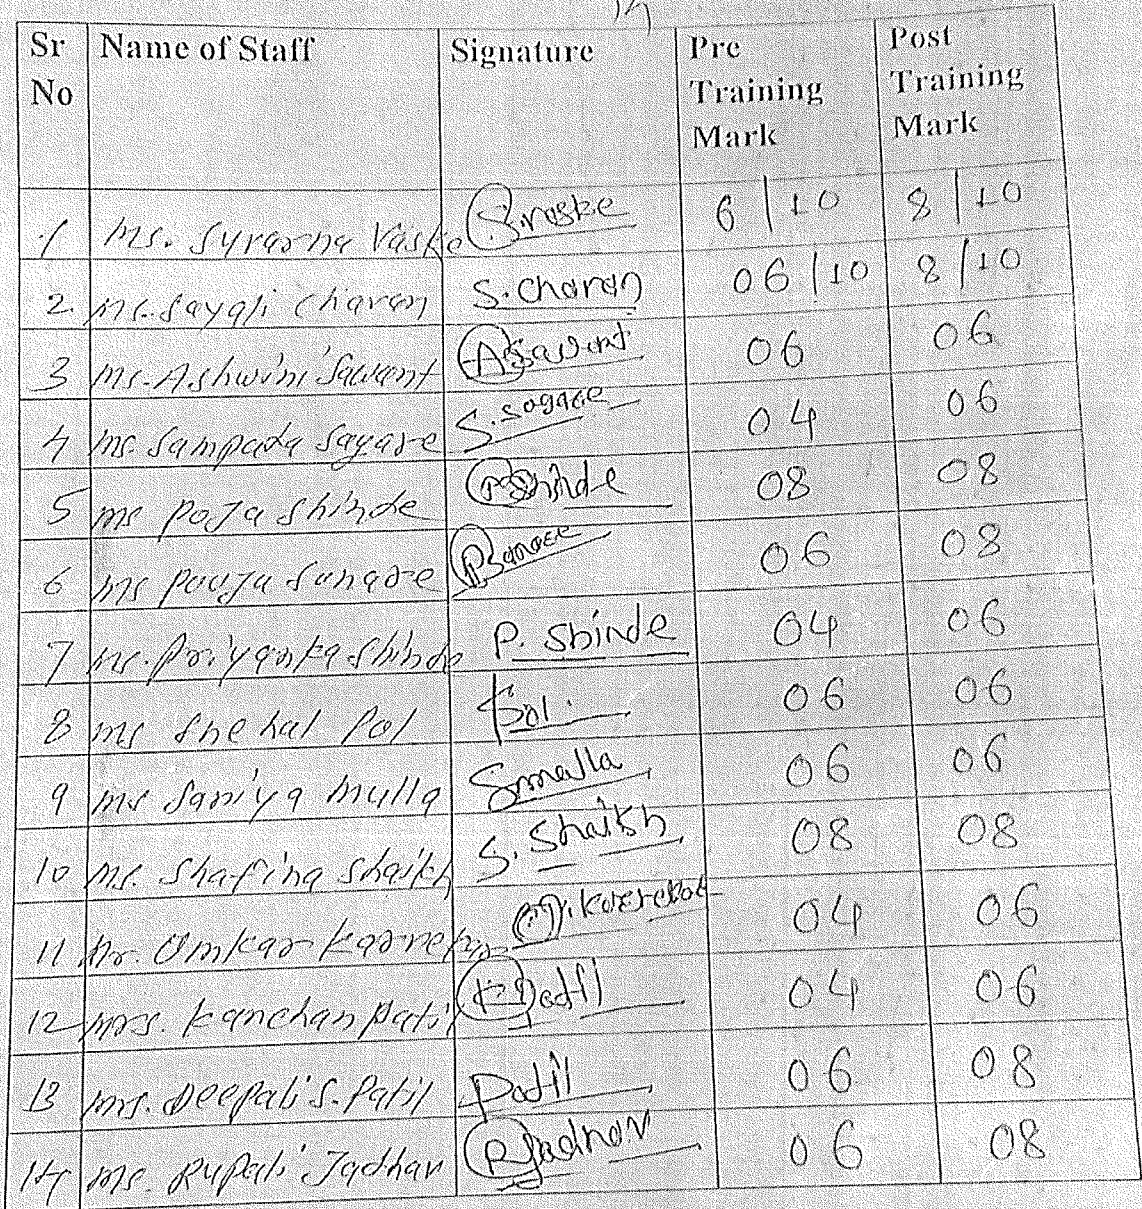 14
Sr No | Name of Staff | Signature | Pre Training Mark | Post Training Mark
1 | Ms. Suvarna Vaske | S.Vaske | 6/10 | 8/10
2. | Ms. Sayali Chavan | S.Chavan | 06/10 | 8/10
3 | Ms. Ashwini Sawant | A Sawant | 06 | 06
4 | Ms. Sampada Sagare | S.Sagare | 04 | 06
5 | Ms Poja Shinde | P Shinde | 08 | 08
6 | Ms Pooja Sanare | | 06 | 08
7 | Ms. Priyanka Shinde | P. Shinde | 04 | 06
8 | Ms Snehal Pol | Pol. | 06 | 06
9 | Ms Saniya Mulla | Smulla | 06 | 06
10 | Ms. Shafina Shaikh | S. Shaikh | 08 | 08
11 | Mr. Omkar Karnekar | | 04 | 06
12 | Mrs. Kanchan Patil | K Patil | 04 | 06
13 | Mrs. Deepali S. Patil | Patil | 06 | 08
14 | Ms. Rupali Jadhav | R Jadhav | 06 | 08